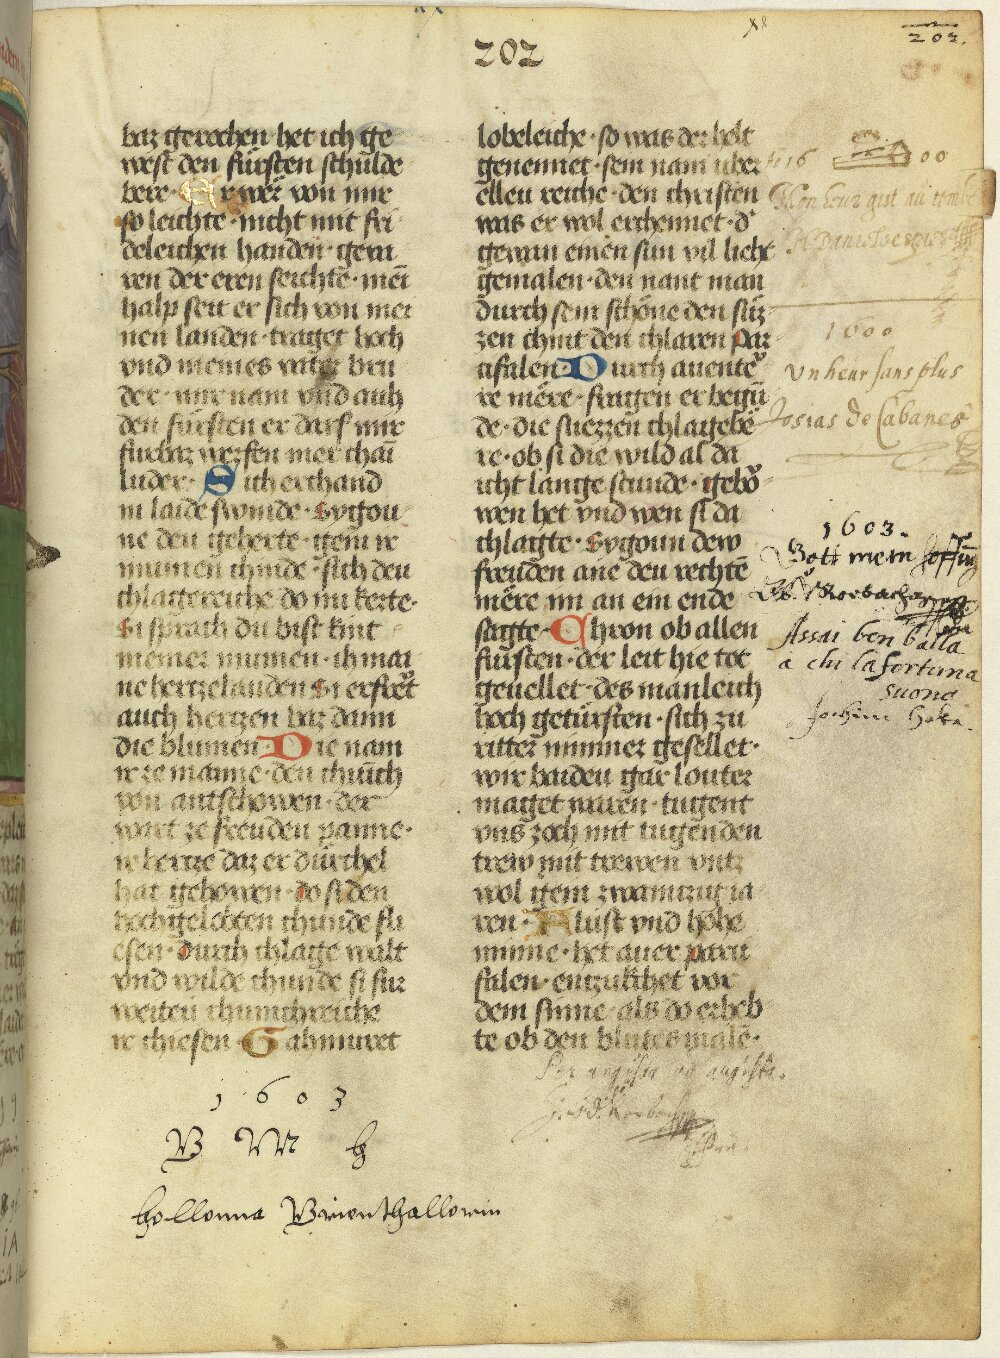 202
202.
baz gerochen het ich ge
west den fürsten schulde
bere · Er wer von mir
so leichte · nicht mit fri
deleichen handen · gera
ren der eren seichte · mei
halp seit er sich von mei
nen landen · traget hoch
vnd meines vater bru
der · mir nam vnd auh
den fürsten er darf mir
fürbaz werfen mer chai
luder · Sich erchand
in laide swinde · Sygou
ne deu geherte · gein ir
mumen chinde · sich deu
chlagereiche do nu kerte ·
Si sprach du bist kint
meiner mumen · ih mai
ne hertzelauden Si erfrewt
auch hertzen baz dann
die blumen · Die nam
ir ze manne · den chunich
von antschowen · der
wart ze freuden panne ·
ir hertze daz er durchel
hat gehowen · do si den
hochgelobten chunde fli
esen · durch chlage walt
vnd wilde chunde si für
weiteu chunichreiche
ir chiesen · Gahmuret
lobeleiche · so was der helt
genennet · sein nam uber
elleu reiche · den christen
was er wol erchennet · d
gewan einen sun vil licht
gemalen · den nant man
durch sein schöne den süz
zen chint den chlaren par
zifalen · Durch auentew
re mere · fragen er begu
de · die suezzen chlageb
re · ob si die wild al da
icht lange stunde · gebo
wen het vnd wen si da
chlagte · Sygoun dew
freuden ane deu rechte
mere im an ein ende
sagte · Chron ob allen
fürsten · der leit hie tot
geuellet · des manleich
hoch getürsten · sich zu
ritter nimmer gesellet ·
wir baideu gar louter
maget waren · tugent
vns zoch mit tugenden
trew mit trewen vntz
wol gein zwaintzig ia
ren · Alust vnd hohe
minne · het auer parci
falen · entzukchet vor
dem sinne · als do erheb
te ob den blutes male ·
16 00
Mon heur gist au tombe
1600
Vn heur sans plus
Josias de Cabanes
1603.
Gott mein Hoffnung
Assai ben balla
a chi la fortuna
suona
Per angusta ad augusta.
1603